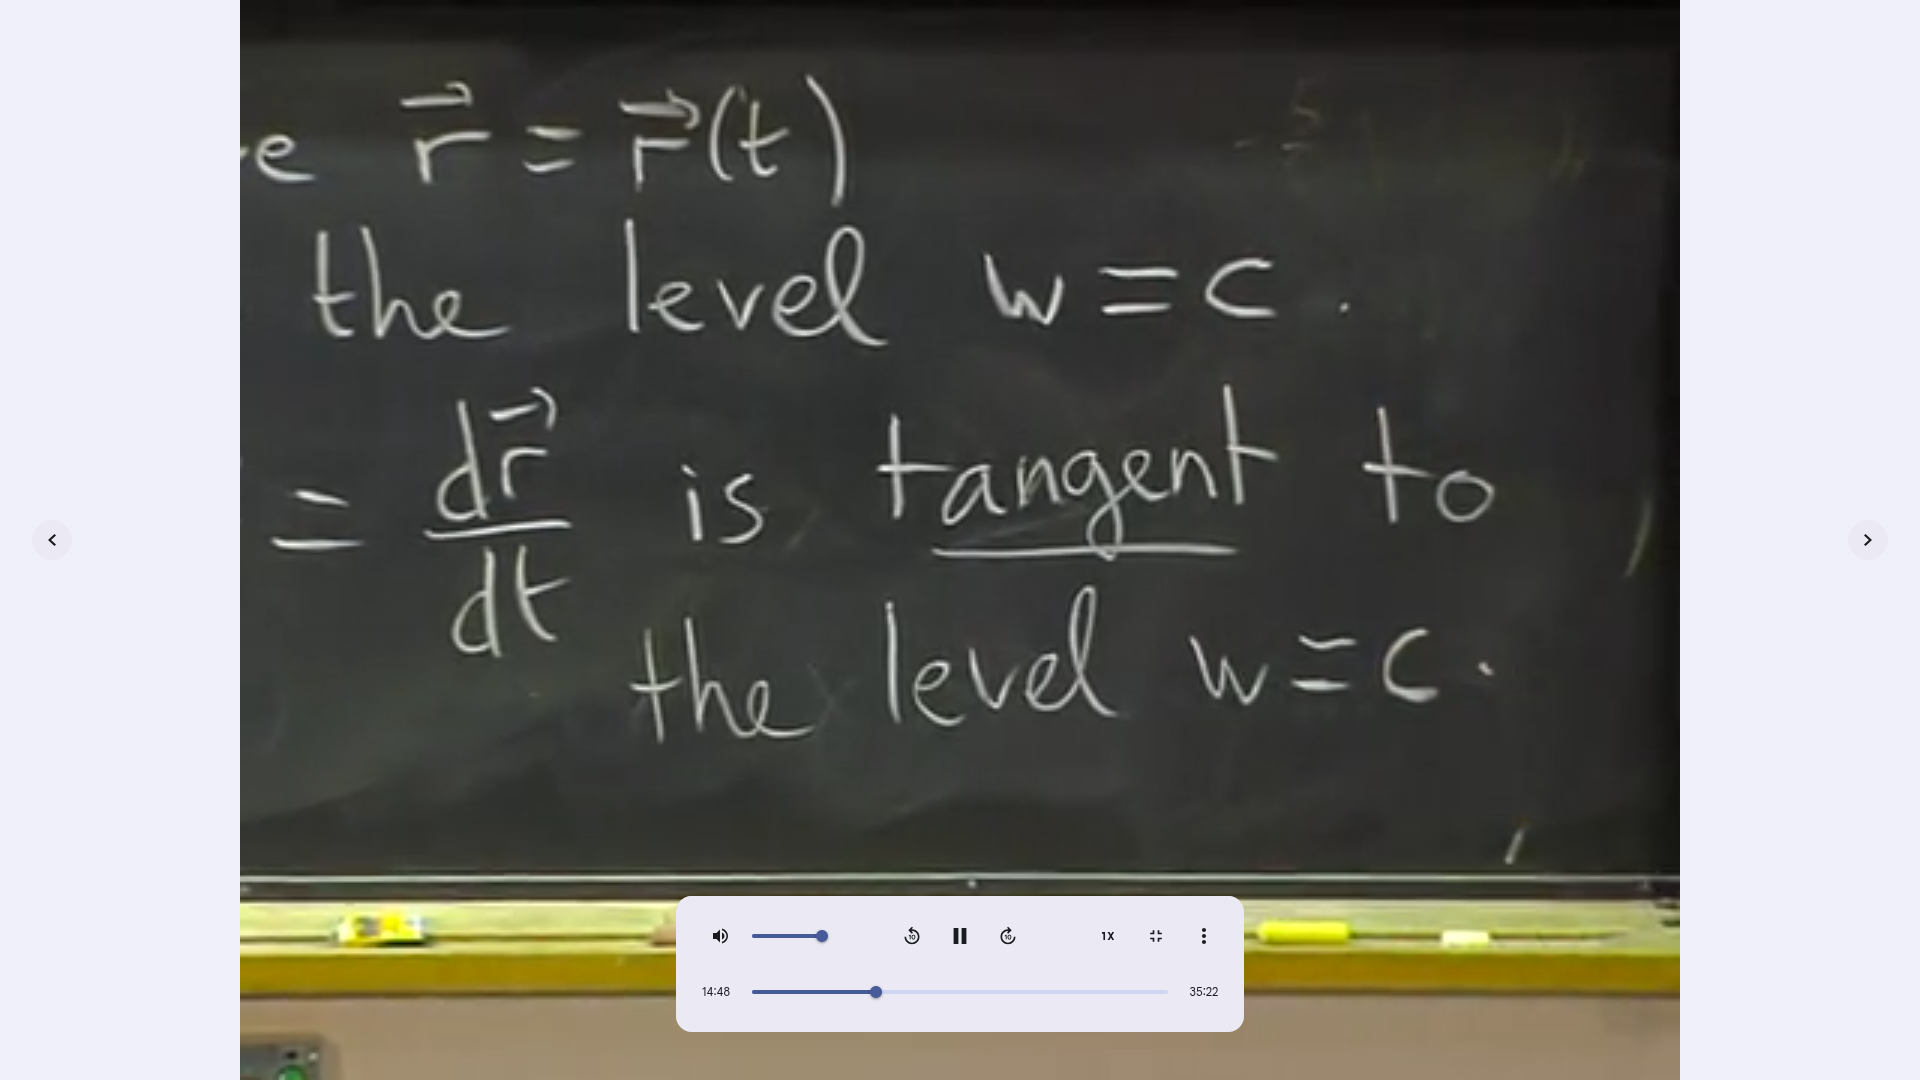 e r⃗ = r⃗(t)
the level w = c .
= dr⃗/dt is tangent to
the level w = c .
10
10
1X
14:48
35:22